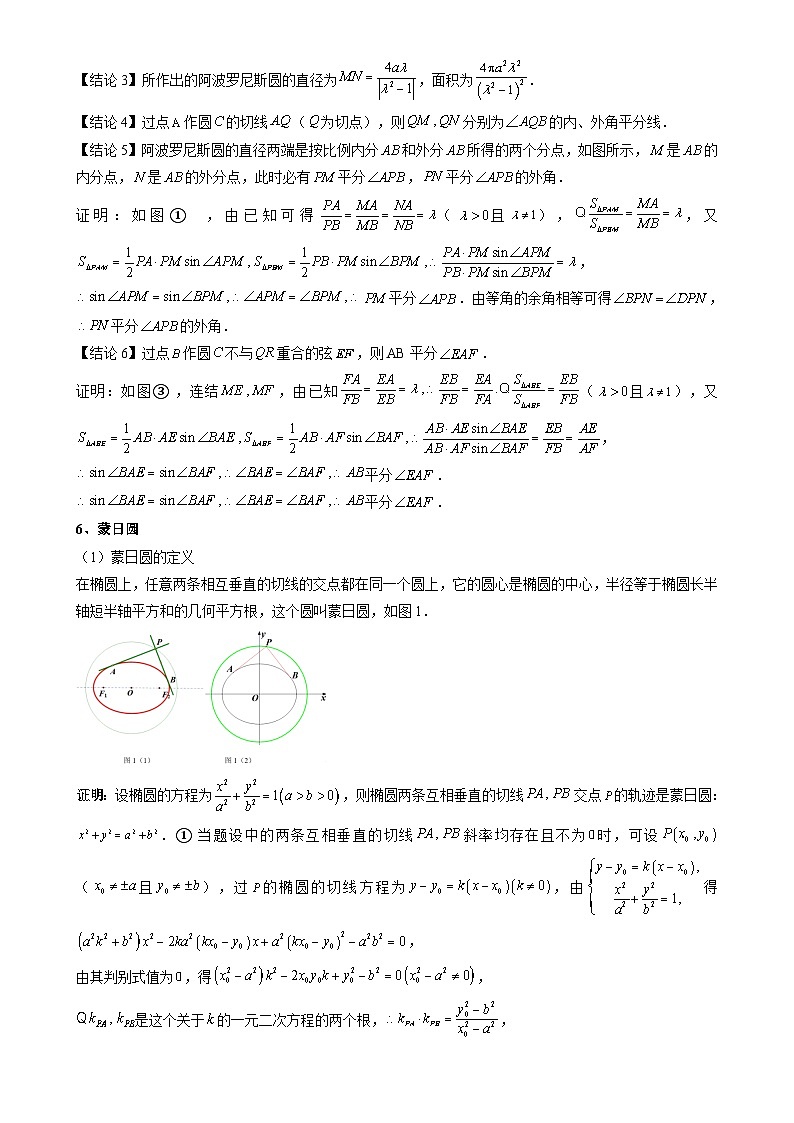 【结论3】所作出的阿波罗尼斯圆的直径为 $MN=\frac{4a\lambda}{|\lambda^2-1|}$，面积为 $\frac{4\pi a^2\lambda^2}{(\lambda^2-1)^2}$．
【结论4】过点A作圆C的切线AQ（Q为切点），则QM,QN分别为∠AQB的内、外角平分线．
【结论5】阿波罗尼斯圆的直径两端是按比例内分AB和外分AB所得的两个分点，如图所示，M是AB的
内分点，N是AB的外分点，此时必有PM平分∠APB，PN平分∠APB的外角．
证明：如图①，由已知可得 $\frac{PA}{PB}=\frac{MA}{MB}=\frac{NA}{NB}=\lambda$（λ>0且λ≠1），Q $\frac{S_{\triangle PAM}}{S_{\triangle PBM}}=\frac{MA}{MB}=\lambda$，又
$S_{\triangle PAM}=\frac{1}{2}PA\cdot PM\sin\angle APM,S_{\triangle PBM}=\frac{1}{2}PB\cdot PM\sin\angle BPM,\therefore\frac{PA\cdot PM\sin\angle APM}{PB\cdot PM\sin\angle BPM}=\lambda$，
∴sin∠APM=sin∠BPM,∴∠APM=∠BPM,∴PM平分∠APB．由等角的余角相等可得∠BPN=∠DPN，
∴PN平分∠APB的外角．
【结论6】过点B作圆C不与QR重合的弦EF，则AB平分∠EAF．
证明：如图③，连结ME,MF，由已知 $\frac{FA}{FB}=\frac{EA}{EB}=\lambda,\therefore\frac{EB}{FB}=\frac{EA}{FA}$.Q $\frac{S_{\triangle ABE}}{S_{\triangle ABF}}=\frac{EB}{FB}$（λ>0且λ≠1），又
$S_{\triangle ABE}=\frac{1}{2}AB\cdot AE\sin\angle BAE,S_{\triangle ABF}=\frac{1}{2}AB\cdot AF\sin\angle BAF,\therefore\frac{AB\cdot AE\sin\angle BAE}{AB\cdot AF\sin\angle BAF}=\frac{EB}{FB}=\frac{AE}{AF}$，
∴sin∠BAE=sin∠BAF,∴∠BAE=∠BAF,∴AB平分∠EAF．
∴sin∠BAE=sin∠BAF,∴∠BAE=∠BAF,∴AB平分∠EAF．
6、蒙日圆
（1）蒙日圆的定义
在椭圆上，任意两条相互垂直的切线的交点都在同一个圆上，它的圆心是椭圆的中心，半径等于椭圆长半
轴短半轴平方和的几何平方根，这个圆叫蒙日圆，如图1．
P
A
B
F₁
O
F₂
图1（1）
y
P
A
B
O
x
图1（2）
证明：设椭圆的方程为 $\frac{x^2}{a^2}+\frac{y^2}{b^2}=1(a>b>0)$，则椭圆两条互相垂直的切线PA,PB交点P的轨迹是蒙日圆：
$x^2+y^2=a^2+b^2$．①当题设中的两条互相垂直的切线PA,PB斜率均存在且不为0时，可设 $P(x_0,y_0)$
（$x_0\neq\pm a$且$y_0\neq\pm b$），过P的椭圆的切线方程为 $y-y_0=k(x-x_0)(k\neq0)$，由 $\begin{cases}y-y_0=k(x-x_0),\\\frac{x^2}{a^2}+\frac{y^2}{b^2}=1,\end{cases}$ 得
$(a^2k^2+b^2)x^2-2ka^2(kx_0-y_0)x+a^2(kx_0-y_0)^2-a^2b^2=0$，
由其判别式值为0，得 $(x_0^2-a^2)k^2-2x_0y_0k+y_0^2-b^2=0(x_0^2-a^2\neq0)$，
Q $k_{PA},k_{PB}$是这个关于k的一元二次方程的两个根，∴ $k_{PA}\cdot k_{PB}=\frac{y_0^2-b^2}{x_0^2-a^2}$，